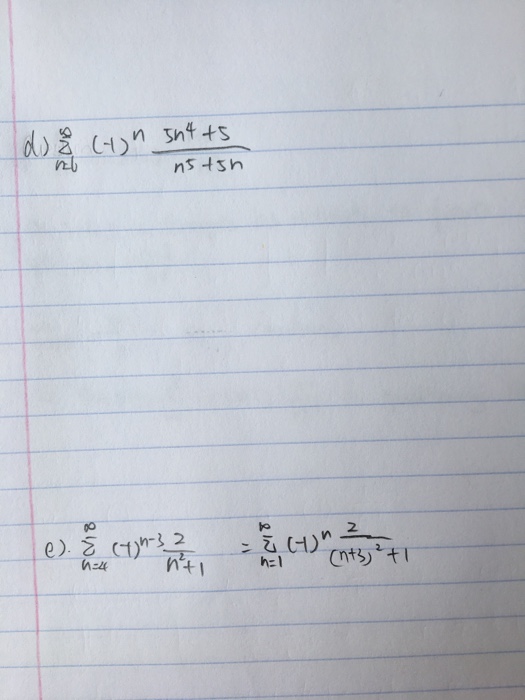 d.) ∞ Σ n=1 (-1)^n (5n^4 + 5)/(n^5 + 5n)
e). ∞ Σ n=4 (-1)^{n-3} 2/(n^2+1) = ∞ Σ n=1 (-1)^n 2/((n+3)^2+1)